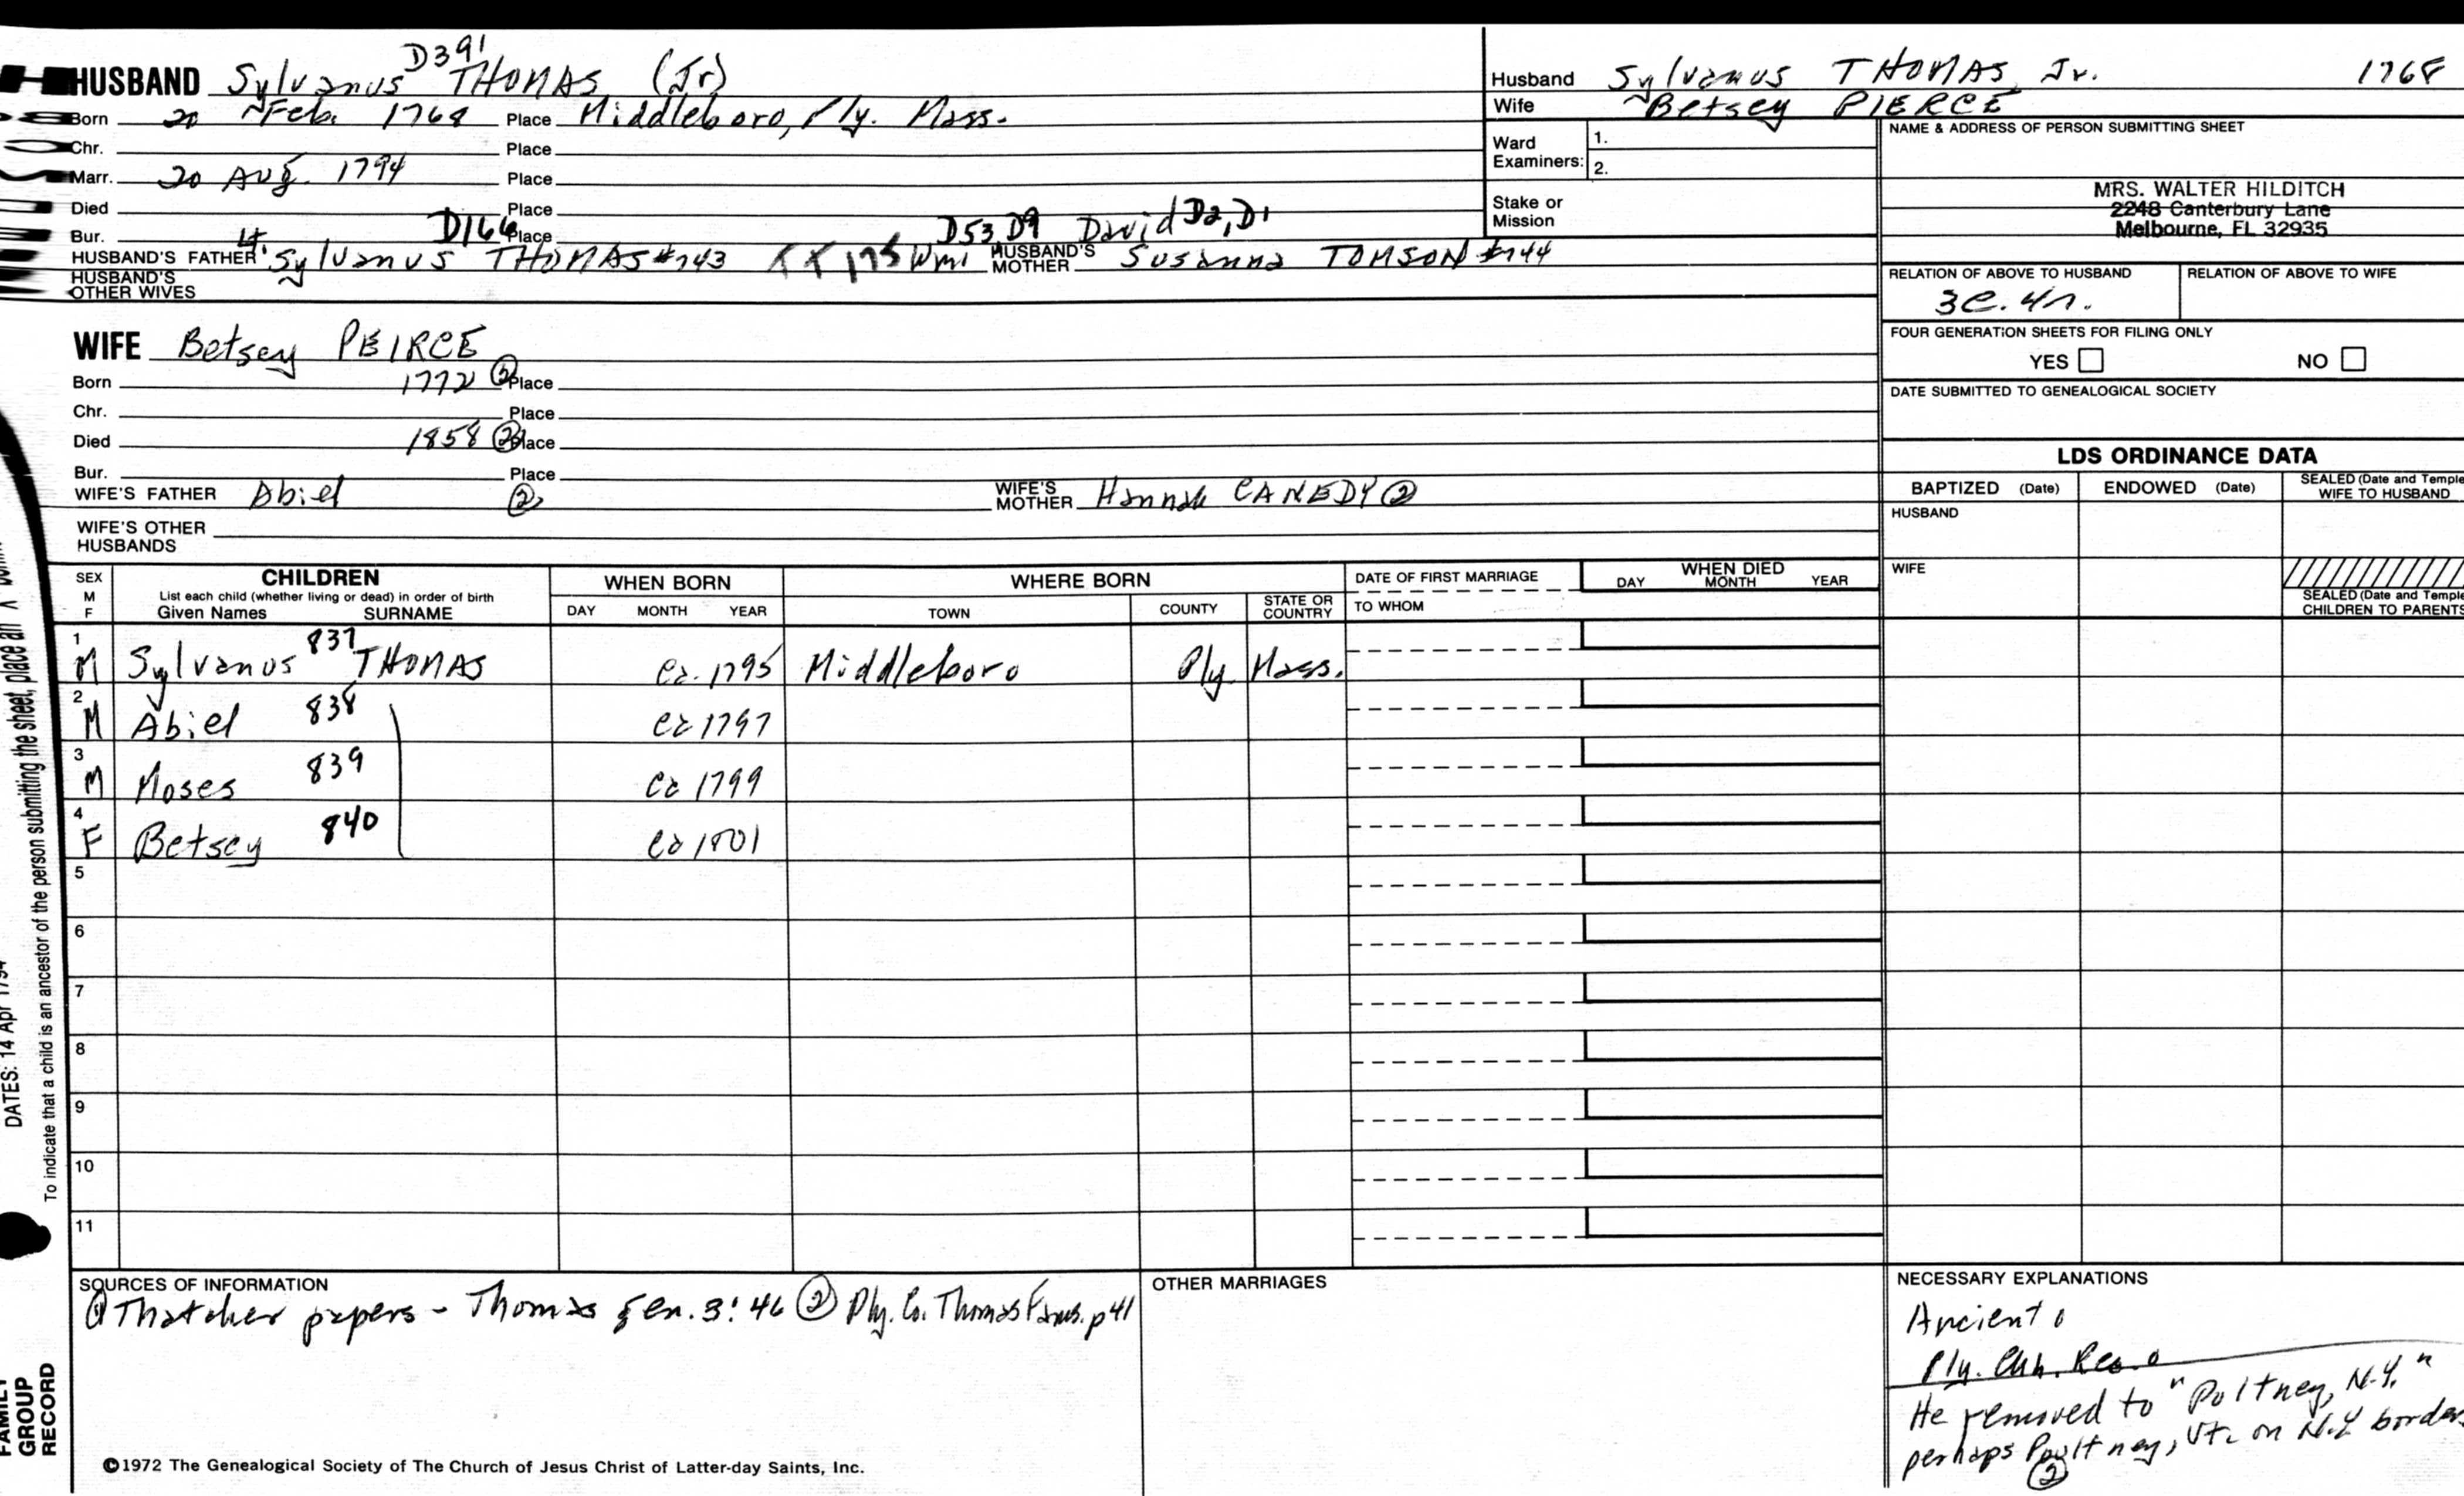 D391
HUSBAND Sylvanus THOMAS (Jr)
Born 20 Feb. 1768 Place Middleboro, Ply. Mass.
Chr. Place
Marr. 20 Aug. 1794 Place
Died Place
Bur. Place
Lt. D166 D53 D9 David D2, D1
HUSBAND'S FATHER Sylvanus THOMAS #743 HUSBAND'S MOTHER Susanna TOMSON #744
HUSBAND'S OTHER WIVES
Husband Sylvanus THOMAS, Jr. 1768
Wife Betsey PIERCE
Ward Examiners: 1.
2.
Stake or Mission
NAME & ADDRESS OF PERSON SUBMITTING SHEET
MRS. WALTER HILDITCH
2248 Canterbury Lane
Melbourne, FL 32935
RELATION OF ABOVE TO HUSBAND RELATION OF ABOVE TO WIFE
3c. 4r.
FOUR GENERATION SHEETS FOR FILING ONLY
YES NO
DATE SUBMITTED TO GENEALOGICAL SOCIETY
WIFE Betsey PEIRCE
Born 1772 ② Place
Chr. Place
Died 1858 ② Place
Bur. Place
WIFE'S FATHER Abiel ② WIFE'S MOTHER Hannah CANEDY ②
WIFE'S OTHER HUSBANDS
LDS ORDINANCE DATA
BAPTIZED (Date) ENDOWED (Date) SEALED (Date and Temple
WIFE TO HUSBAND
HUSBAND
WIFE
SEALED (Date and Temple
CHILDREN TO PARENTS
SEX M F CHILDREN WHEN BORN WHERE BORN DATE OF FIRST MARRIAGE WHEN DIED
List each child (whether living or dead) in order of birth
Given Names SURNAME DAY MONTH YEAR TOWN COUNTY STATE OR COUNTRY TO WHOM DAY MONTH YEAR
1 M Sylvanus 837 THOMAS ca. 1795 Middleboro Ply. Mass.
2 M Abiel 838 ca 1797
3 M Moses 839 ca 1799
4 F Betsey 840 ca 1801
5
6
7
8
9
10
11
SOURCES OF INFORMATION
① Thatcher papers - Thomas gen. 3:46 ② Ply. Co. Thomas Fams. p41
OTHER MARRIAGES
NECESSARY EXPLANATIONS
Ancient
Ply. Chh. Rec.
He removed to "Poltney, N.Y."
perhaps Poultney, Vt. on N.Y border
②
©1972 The Genealogical Society of The Church of Jesus Christ of Latter-day Saints, Inc.
To indicate that a child is an ancestor of the person submitting the sheet, place an
DATES: 14 Apr 1794
FAMILY
GROUP
RECORD